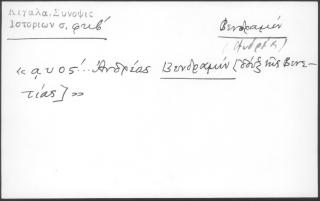 Κιγάλα, Σύνοψις
Ἱστοριῶν σ, φκβ΄
Βενδραμὴν
(Ἀνδρέας)
«αυος΄... Ἀνδρέας Βενδραμὴν [δόξ τῆς Βενε-
τίας]»